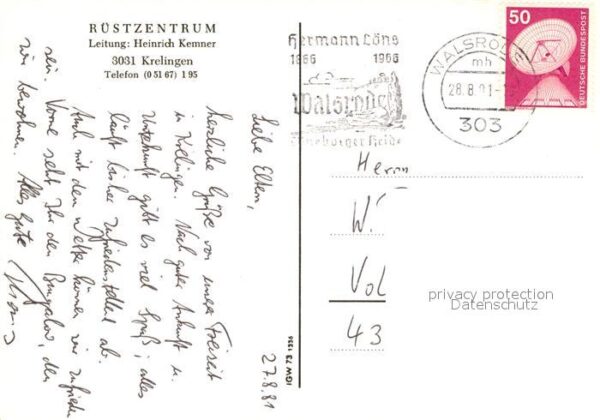 RÜSTZENTRUM
Leitung: Heinrich Kemner
3031 Krelingen
Telefon (0 51 67) 1 95
27.8.81
Liebe Eltern,
herzliche Grüße von unserer Freizeit
in Krelingen. Nach guter Ankunft u.
Unterkunft gibt es viel Spaß; alles
läuft bisher zufriedenstellend ab.
Auch mit dem Wetter können wir zufrieden
sein. Vorne seht Ihr den Bungalow, den
wir bewohnen. Alles Gute
IGW 73 1226
Hermann Löns
1866 1966
Walsrode
Lüneburger Heide
WALSRODE
mh
28.8.81-
303
50
DEUTSCHE BUNDESPOST
Herrn
W.
Vol
43
privacy protection
Datenschutz